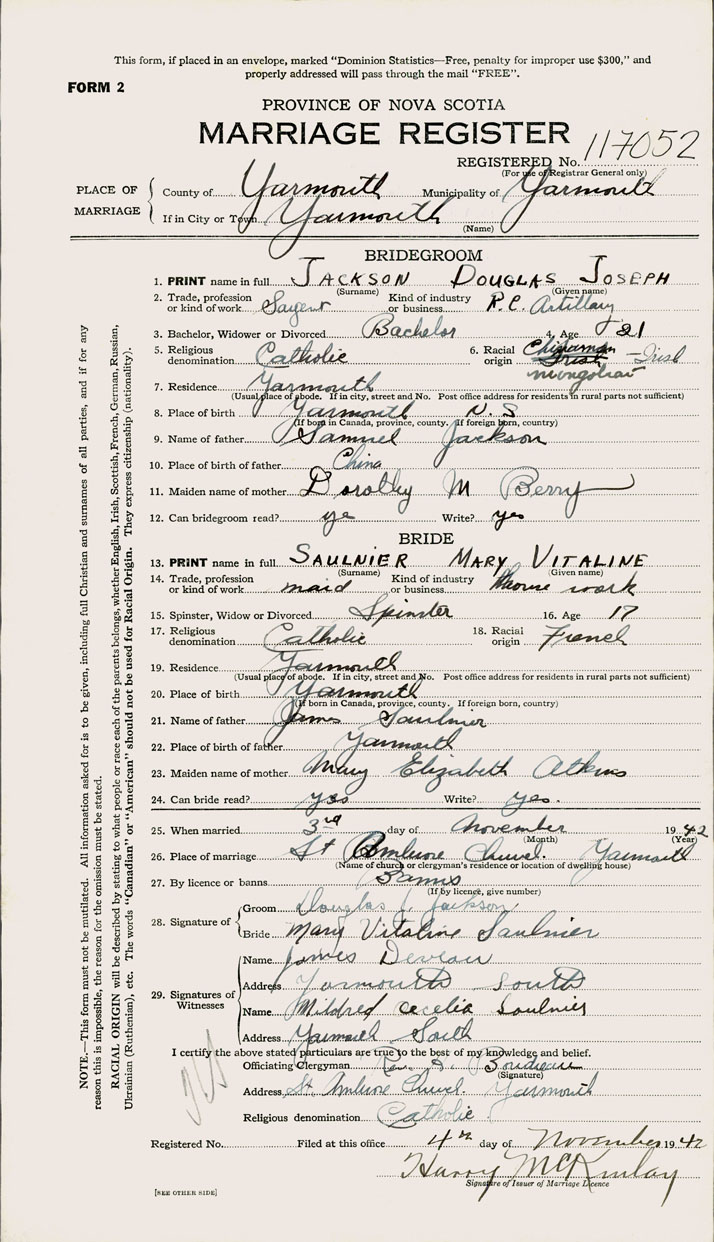 This form, if placed in an envelope, marked "Dominion Statistics—Free, penalty for improper use $300," and
properly addressed will pass through the mail "FREE".
FORM 2
PROVINCE OF NOVA SCOTIA
MARRIAGE REGISTER
REGISTERED No. 117052
(For use of Registrar General only)
PLACE OF MARRIAGE
County of Yarmouth Municipality of Yarmouth
If in City or Town Yarmouth
(Name)
BRIDEGROOM
1. PRINT name in full JACKSON DOUGLAS JOSEPH
(Surname) (Given name)
2. Trade, profession or kind of work Sargent Kind of industry or business R.C. Artillary
3. Bachelor, Widower or Divorced Bachelor 4. Age 21
5. Religious denomination Catholic 6. Racial origin Chinaman Irish - Irish
mongolian
7. Residence Yarmouth
(Usual place of abode. If in city, street and No. Post office address for residents in rural parts not sufficient)
8. Place of birth Yarmouth N.S
(If born in Canada, province, county. If foreign born, country)
9. Name of father Samuel Jackson
10. Place of birth of father China
11. Maiden name of mother Dorothy M Berry
12. Can bridegroom read? yes Write? yes
BRIDE
13. PRINT name in full SAULNIER MARY VITALINE
(Surname) (Given name)
14. Trade, profession or kind of work maid Kind of industry or business House work
15. Spinster, Widow or Divorced Spinster 16. Age 17
17. Religious denomination Catholic 18. Racial origin French
19. Residence Yarmouth
(Usual place of abode. If in city, street and No. Post office address for residents in rural parts not sufficient)
20. Place of birth Yarmouth
(If born in Canada, province, county. If foreign born, country)
21. Name of father James Saulnier
22. Place of birth of father Yarmouth
23. Maiden name of mother Mary Elizabeth Atkins
24. Can bride read? yes Write? yes.
25. When married 3rd day of November 1942
(Month) (Year)
26. Place of marriage St Ambrose Church. Yarmouth
(Name of church or clergyman's residence or location of dwelling house)
27. By licence or banns Banns
(If by licence, give number)
28. Signature of
Groom Douglas J. Jackson
Bride Mary Vitaline Saulnier
29. Signatures of Witnesses
Name James Deveau
Address Yarmouth South
Name Mildred Cecelia Saulnier
Address Yarmouth South
I certify the above stated particulars are true to the best of my knowledge and belief.
Officiating Clergyman Rev. Boudreau
(Signature)
Address St. Ambrose Church. Yarmouth
Religious denomination Catholic
Registered No. Filed at this office 4th day of November 1942
Harry McKinlay
Signature of Issuer of Marriage Licence
[SEE OTHER SIDE]
NOTE.—This form must not be mutilated. All information asked for is to be given, including full Christian and surnames of all parties, and if for any
reason this is impossible, the reason for the omission must be stated.
RACIAL ORIGIN will be described by stating to what people or race each of the parents belongs, whether English, Irish, Scottish, French, German, Russian,
Ukrainian (Ruthenian), etc. The words "Canadian" or "American" should not be used for Racial Origin. They express citizenship (nationality).